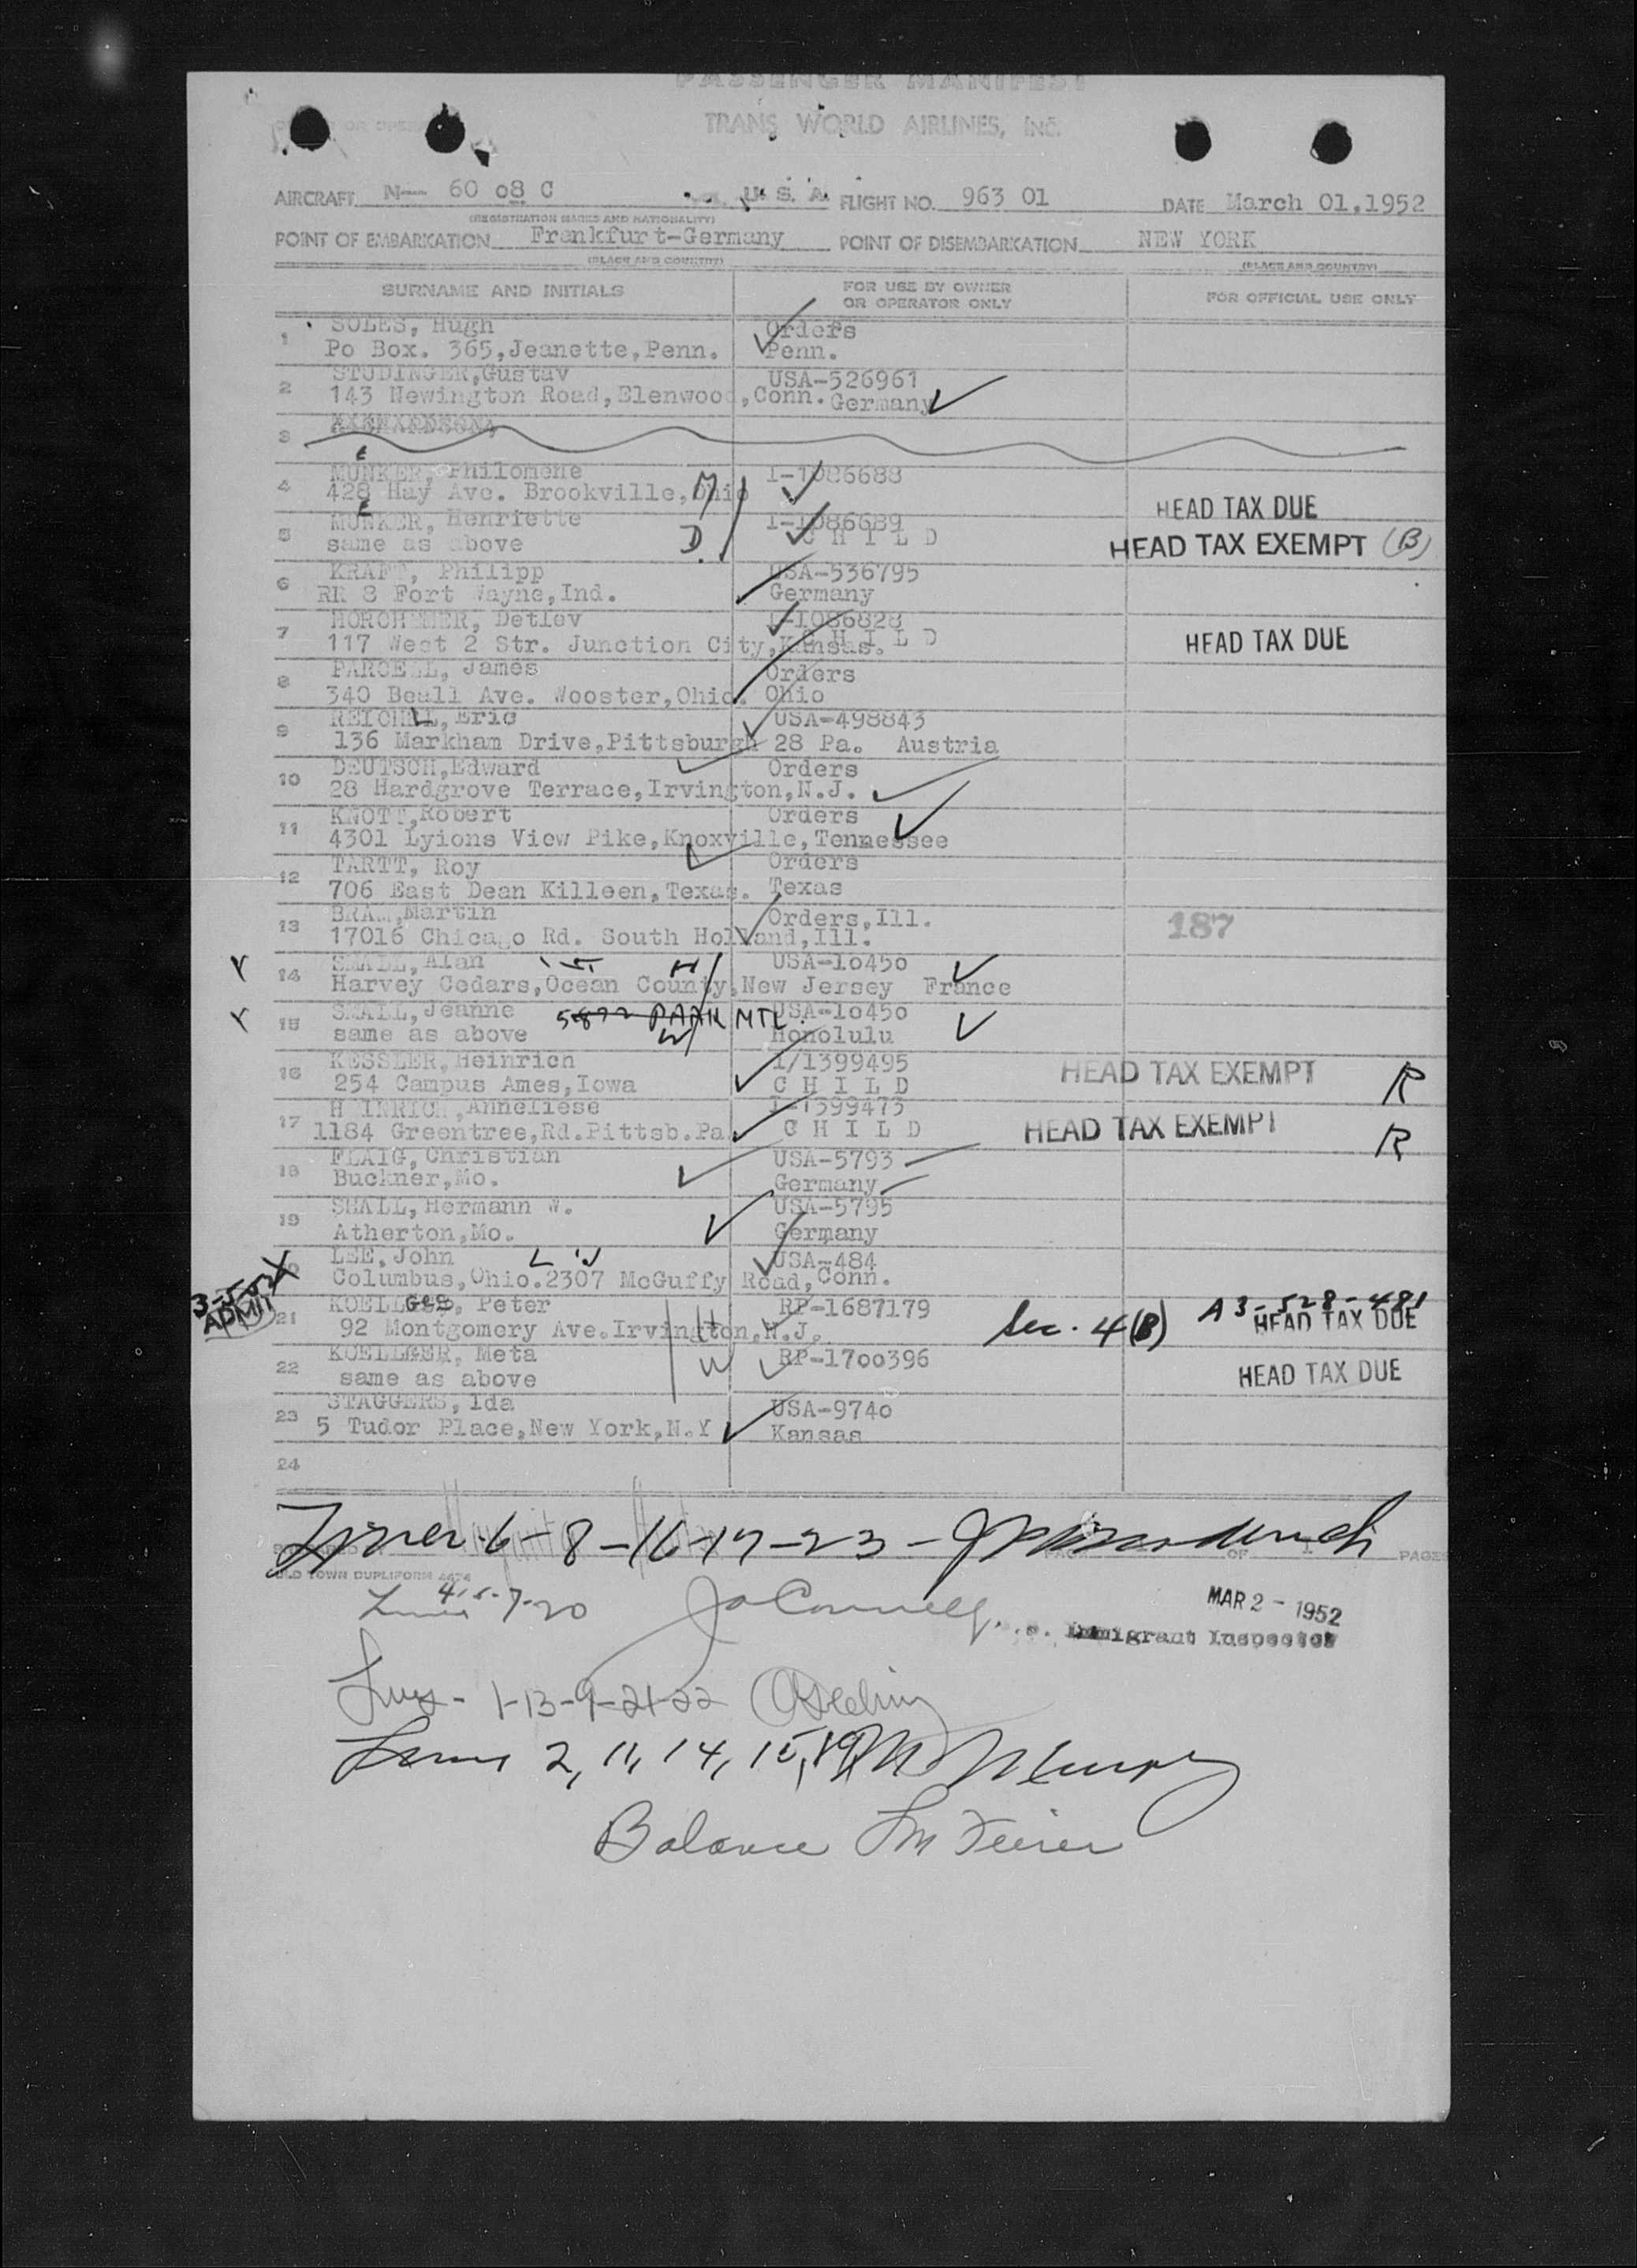 PASSENGER MANIFEST
TRANS WORLD AIRLINES, INC.
AIRCRAFT N— 60 08 C U. S. A. FLIGHT NO. 963 01 DATE March 01.1952
(REGISTRATION MARKS AND NATIONALITY)
POINT OF EMBARKATION Frankfurt-Germany POINT OF DISEMBARKATION NEW YORK
(PLACE AND COUNTRY) (PLACE AND COUNTRY)
SURNAME AND INITIALS FOR USE BY OWNER OR OPERATOR ONLY FOR OFFICIAL USE ONLY
1 SOLES, Hugh Orders
Po Box. 365,Jeanette,Penn. Penn.
2 STUDINGER,Gustav USA-526961
143 Newington Road,Elenwood,Conn. Germany
3
4 MUNKER, Philomene I-1086688
428 Hay Ave. Brookville,Ohio M HEAD TAX DUE
5 MUNKER, Henriette I-1086689
same as above D. C H I L D HEAD TAX EXEMPT (B)
6 KRAFT, Philipp USA-536795
RR 8 Fort Wayne,Ind. Germany
7 HORCHEMER, Detlev I-1086828
117 West 2 Str. Junction City,Kansas. C H I L D HEAD TAX DUE
8 PARCELL, James Orders
340 Beall Ave. Wooster,Ohio. Ohio
9 REICHEL, Eric USA-498843
136 Markham Drive,Pittsburgh 28 Pa. Austria
10 DEUTSCH,Edward Orders
28 Hardgrove Terrace,Irvington,N.J.
11 KNOTT,Robert Orders
4301 Lyions View Pike,Knoxville,Tennessee
12 TARTT, Roy Orders
706 East Dean Killeen,Texas. Texas
13 BRAM,Martin Orders,Ill. 187
17016 Chicago Rd. South Holland,Ill.
14 SMALL, Alan H USA-10450
Harvey Cedars,Ocean County,New Jersey France
15 SMALL, Jeanne USA-10450
same as above W Honolulu
16 KESSLER, Heinrich I/1399495 HEAD TAX EXEMPT R
254 Campus Ames,Iowa C H I L D
17 HEINRICH,Anneliese I-1399473
1184 Greentree,Rd.Pittsb.Pa C H I L D HEAD TAX EXEMPT R
18 FLAIG, Christian USA-5793
Buckner,Mo. Germany
19 SMALL, Hermann W. USA-5795
Atherton,Mo. Germany
LEE, John USA-484
Columbus,Ohio.2307 McGuffy Road,Conn.
ADMIT
21 Peter H RP-1687179 A3-528-481
92 Montgomery Ave.Irvington,N.J. Sec. 4(B) HEAD TAX DUE
22 KOELLGER, Meta W RP-1700396
same as above HEAD TAX DUE
23 STAGGERS, Ida USA-9740
5 Tudor Place,New York,N.Y Kansas
24
Lines 6-8-16-17-23-
OF 1 PAGES
OLD TOWN DUPLIFORM
Lines 4-5-7-20
MAR 2 - 1952
Immigrant Inspector
Lines - 1-13-9-21-22
Lines 2, 11, 14, 15, 19 Murphy
Balance